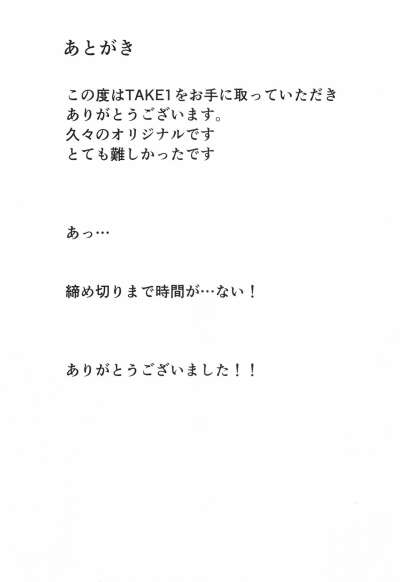 あとがき
この度はTAKE1をお手に取っていただき
ありがとうございます。
久々のオリジナルです
とても難しかったです
あっ…
締め切りまで時間が…ない！
ありがとうございました！！